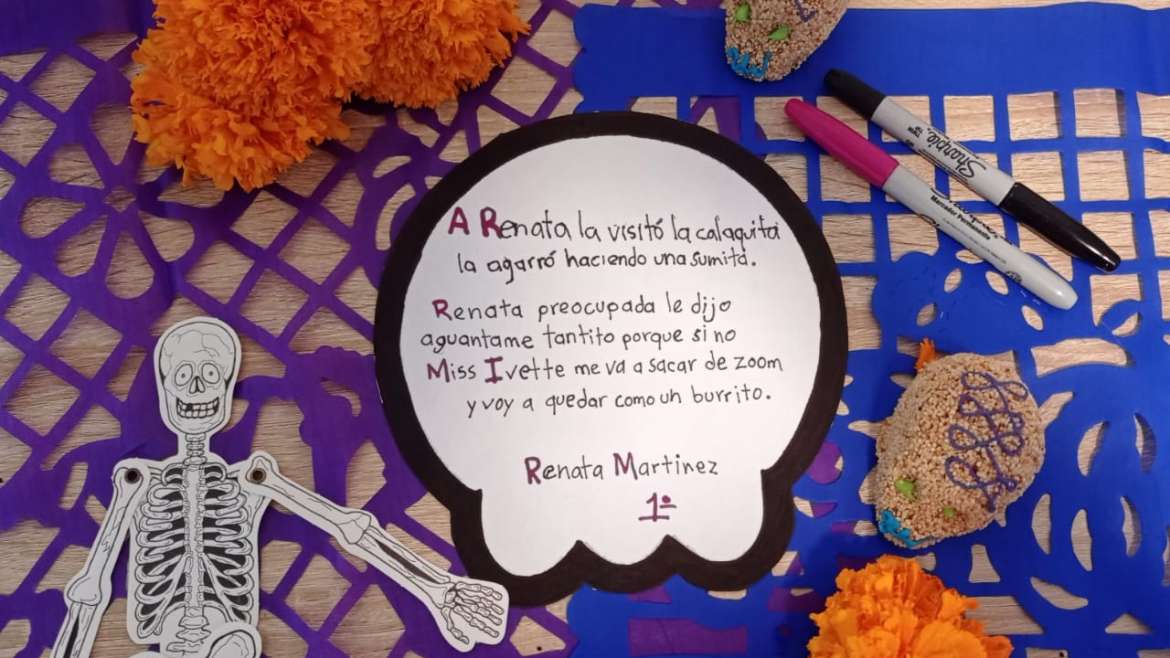 A Renata la visitó la calaquita
la agarró haciendo una sumita.
Renata preocupada le dijo
aguantame tantito porque si no
Miss Ivette me va a sacar de zoom
y voy a quedar como un burrito.
Renata Martinez
1º
Sharpie